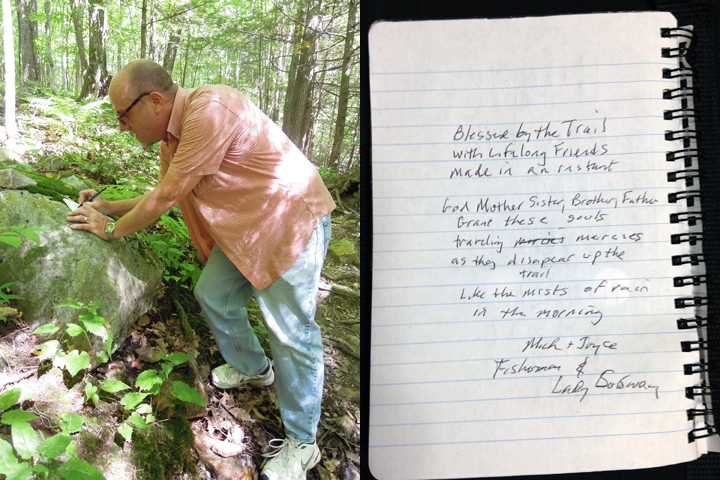 Blessed by the Trail
with Lifelong Friends
made in an instant
God Mother Sister, Brother, Father
Grant these souls
traveling mercies
as they disapear up the
trail
Like the mists of rain
in the morning
Mick + Joyce
Fisherman &
Lady